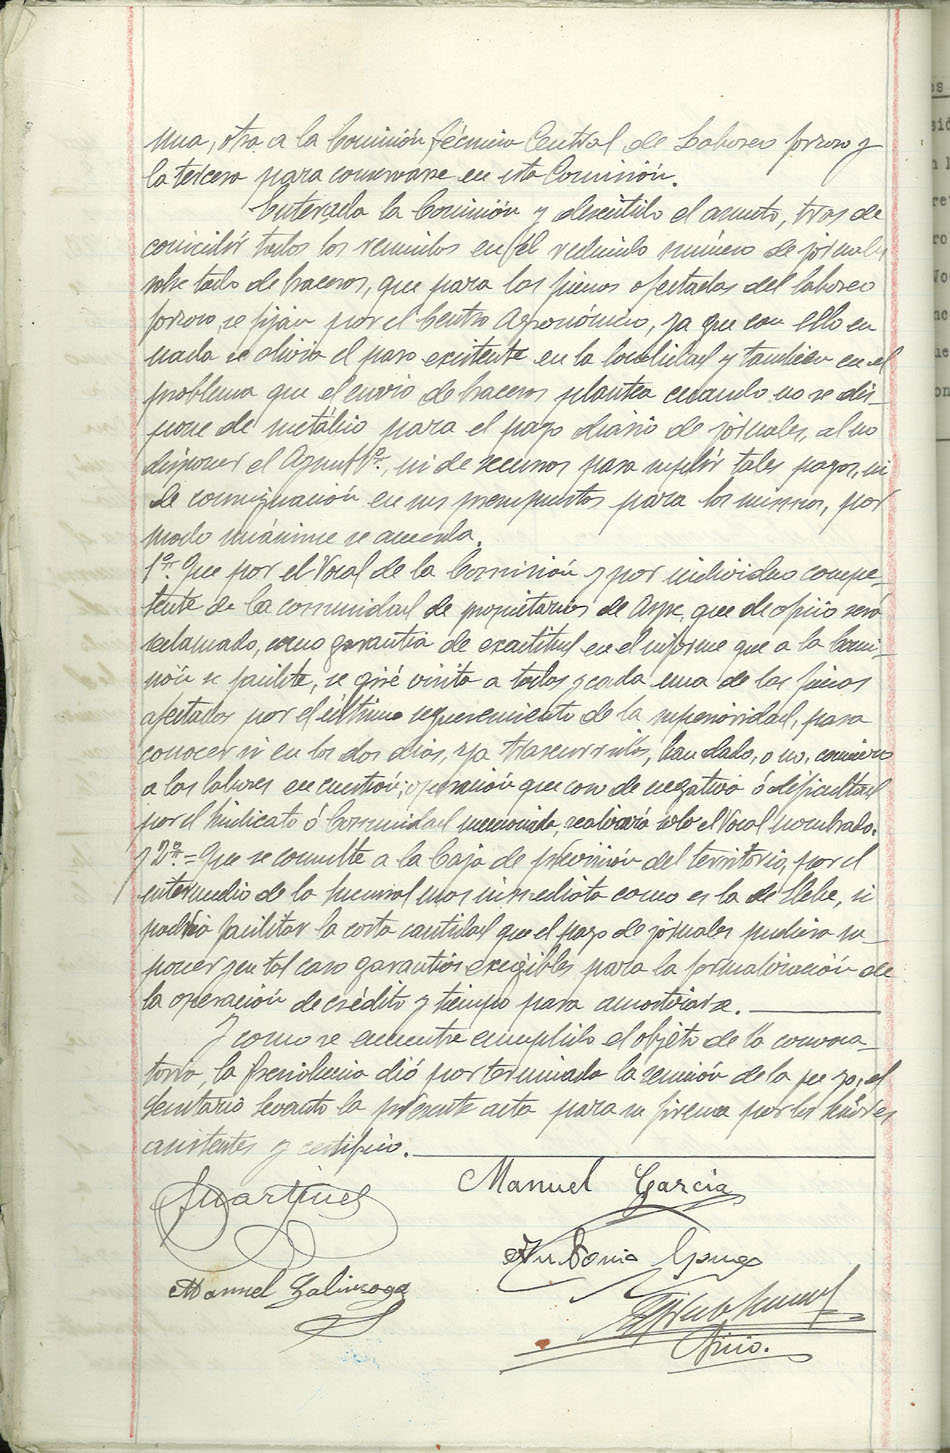 una, otra a la Comisión técnica Central de Laboreo forzoso y
la tercera para conservarse en esta Comisión.
Enterada la Comisión y discutido el asunto, tras de
coincidir todos los reunidos en el reducido número de jornales
sobre todo de braceros, que para las fincas afectadas del laboreo
forzoso, se fijan por el Centro Agronómico, ya que con ello en
nada se alivia el paro existente en la localidad y tambien en el
problema que el envio de braceros plantea cuando no se dis-
pone de metálico para el pago diario de jornales, al no
disponer el Ayuntº., ni de recursos para suplir tales pagos, ni
de consignación en sus presupuestos para los mismos, por
modo unánime se acuerda.
1º. Que por el Vocal de la Comisión y por individuo compe-
tente de la comunidad de propietarios de Aspe, que de oficio será
reclamado, como garantia de exactitud en el informe que a la Comi-
sión se facilite, se giré visita a todas y cada una de las fincas
afectadas por el último requerimiento de la superioridad, para
conocer si en los dos dias, ya trascurridos, han dado, o no, comienzo
a las labores en cuestión; operación que caso de negativa ó dificultad
por el Sindicato ó Comunidad mencionada, realizará solo el Vocal nombrado.
y 2º.= Que se consulte a la Caja de previsión del territorio, por el
intermedio de la sucursal mas inmediata como es la de Elche, si
podria facilitar la corta cantidad que el pago de jornales pudiera su-
poner y en tal caso garantias exigibles para la formalización de
la operación de crédito y tiempo para amortizarse.
Y como se encuentra cumplido el objeto de la convoca-
toria, la Presidencia dió por terminada la reunión de la que yo, el
Secretario levanto la presente acta para su firma por los señores
asistentes y certifico.
Martinez
Manuel Garcia
Antonio
Manuel Galinsoga
Srio.